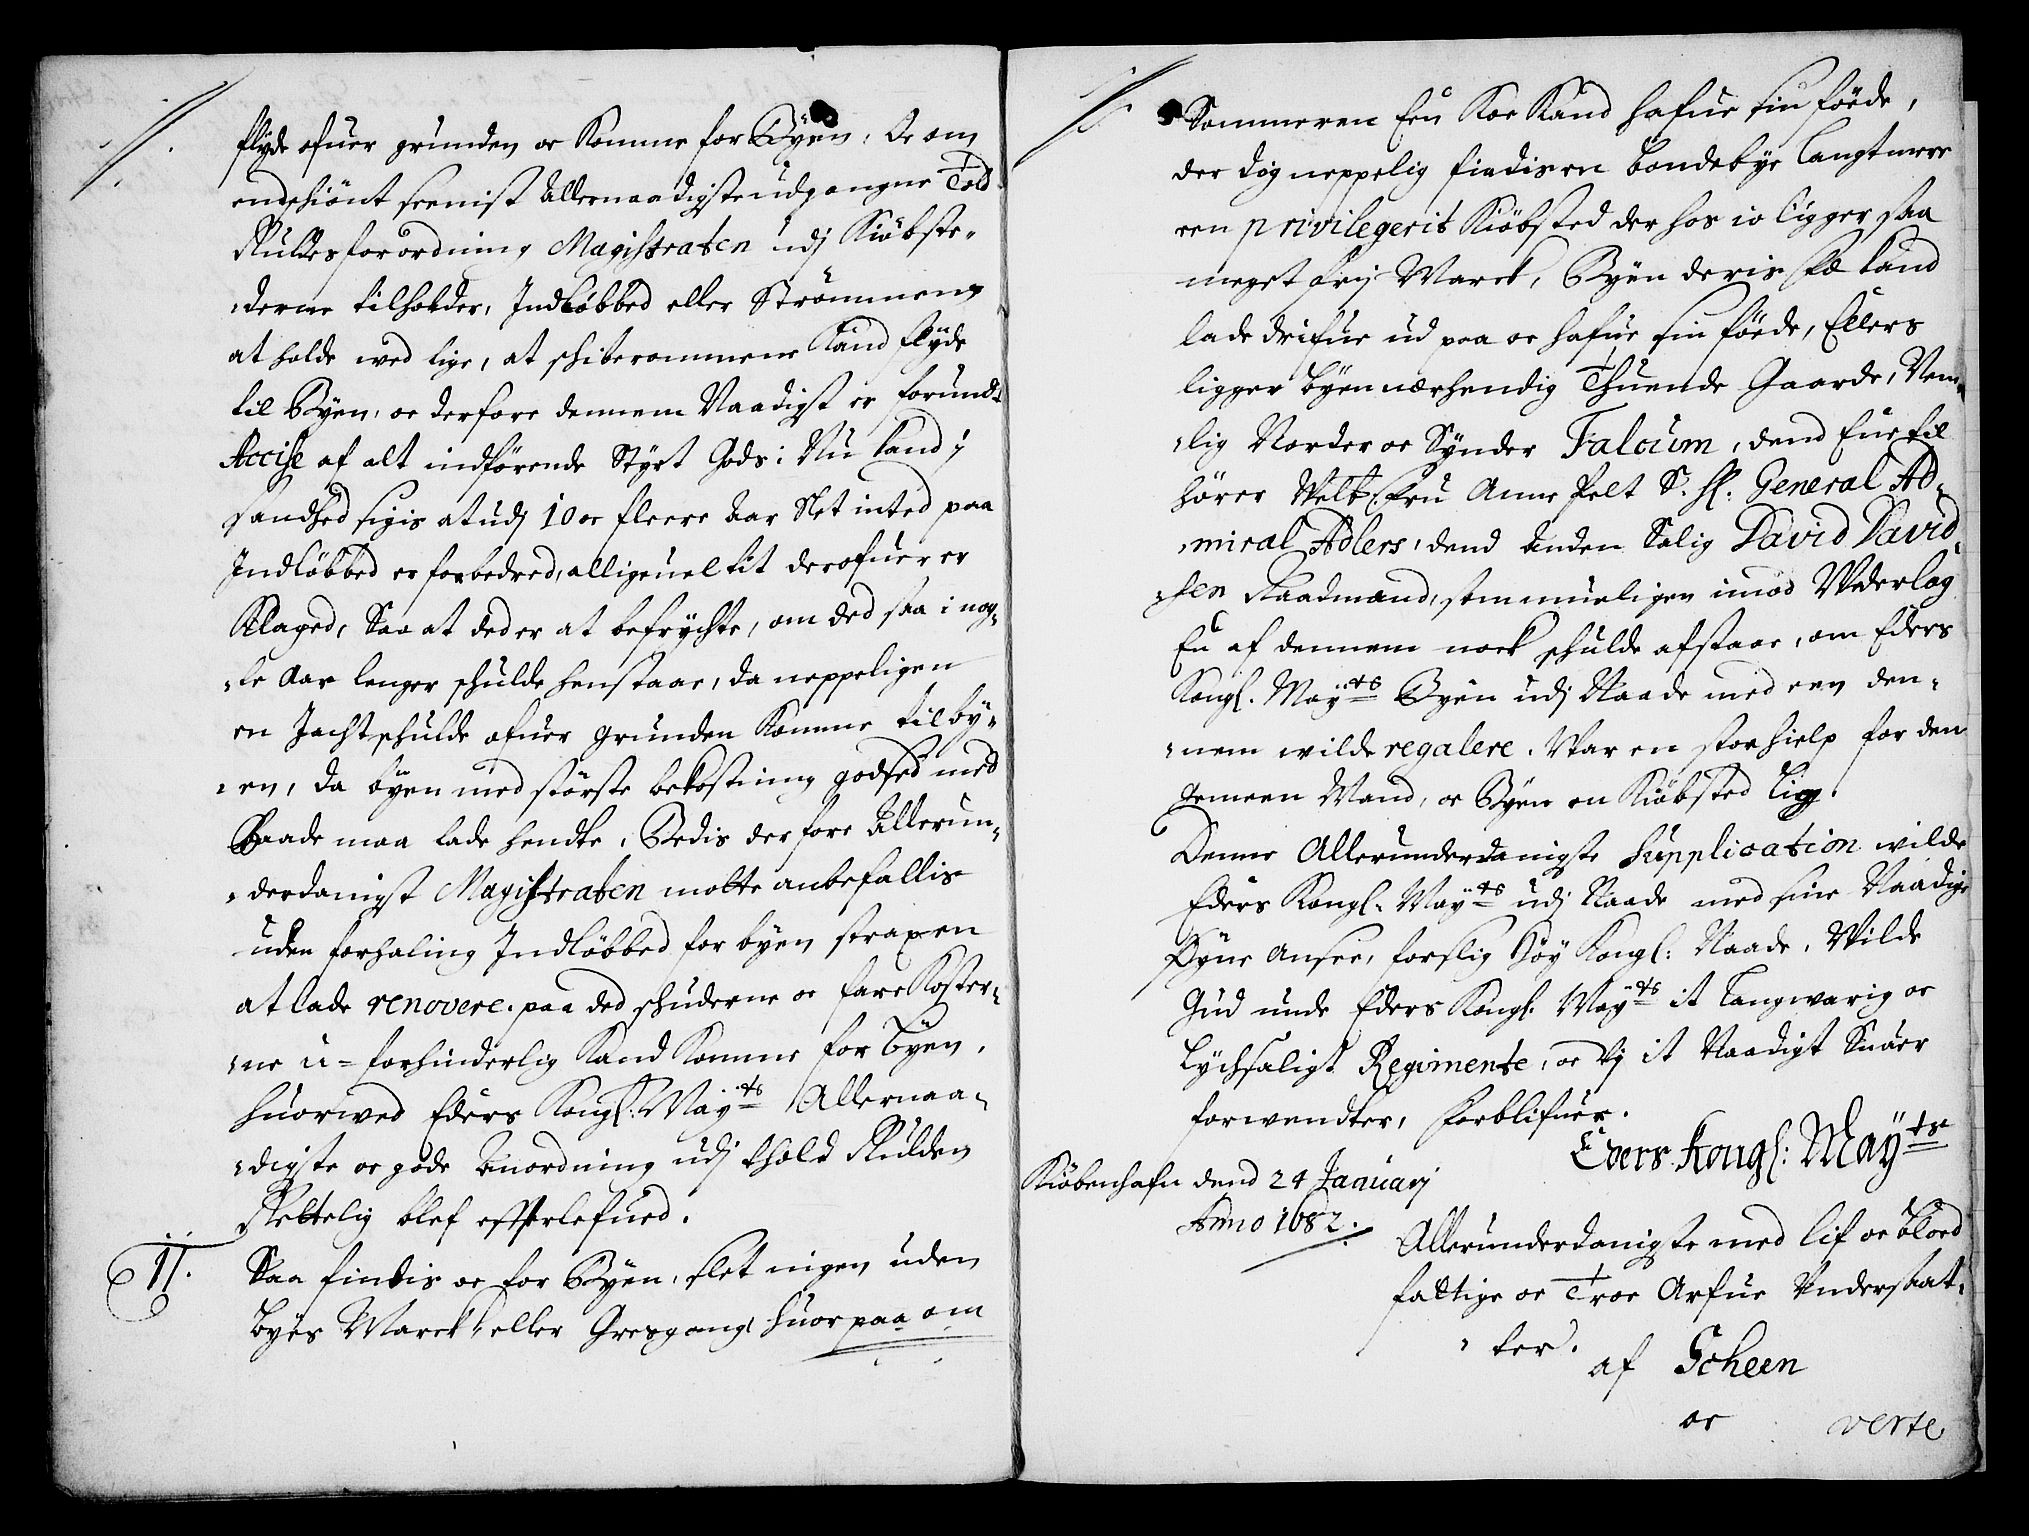 flyde ofuer grunden oc komme for Byen, Oc om
endschiönt seenist Allernaadigste udgangne Told
Rulles forordning Magistraten udj Kiöbste-
derne tilholder, Indlöbbed eller Strömmene
at holde wed lige, at schiberommene kand flyde
til Byen, oc derfore dennem Naadigst er forundt
Accise af alt indförende Styrt Gods; Nu kand j
sandhed sigis at udj 10 oc fleere Aar Slet inted paa
Indlöbbed er forbedred, alligeuel tit derofuer er
Klaged, Saa at ded er at befrychte, om ded saa i nog-
le Aar lenger schulde henstaae, da neppeligen
en Jacht schulde ofuer grunden komme til by-
en, da byen med störste bekostning godsed med
Baade maa lade hendte, Bedis derfore Allerun-
derdanigst Magistraten motte anbefallis
uden forhaling Indlöbbed for byen straxen
at lade renovere, paa ded schuderne oc fare Koster-
ne u-forhinderlig kand komme for byen,
huorwed Eders Kongl: Mayts Allernaa-
digste oc gode Anordning udj thold Rulden
Rettelig blef efterlefued.
11. Saa findis oc for Byen, slet ingen uden
byes Marck eller Gresgang, huor paa om
Sommeren Een Koe kand hafue sin föede,
der dog neppelig findis en bondebye langt meere
een privilegerit Kiöbsted der hos io ligger saa
meget frij Marck, Byen deris fæ kand
lade drifue ud paa oc hafue sin föede, Ellers
ligger byen nærhendig Thuende Gaarde, Nem-
lig Norder oc Synder Falcum, dend Ene til
hörer Welb. Fru Anne Pelt S. H: General Ad-
miral Adlers, dend Anden Salig David David-
sen Raadmand, som mueligen imod Wederlag
En af dennem nock schulde afstaae, om Eders
Kongl. Mayts Byen udj Naade med een den-
nem wilde regalere. War en stor hielp for den
gemeen Mand, oc Byen en Kiöbsted lig.
Denne Allerunderdanigste Supplication wilde
Eders Kongl. Mayts udj Naade med sine Naadige
Öyne Ansee, for slig Höy Kongl: Naade, Wilde
Gud unde Eders Kongl. Mayts it langwarig oc
lychsaligt Regimente, oc Vj it Naadigt Suaer
forwendter, forblifuer.
Eders Kongl: Mayts
Kiöbenhafn dend 24 Januarj
Anno 1682.
Allerunderdanigste med lif oc bloed
fattige oc Troe Arfue Undersaat-
ter.
af Scheen
oc
verte